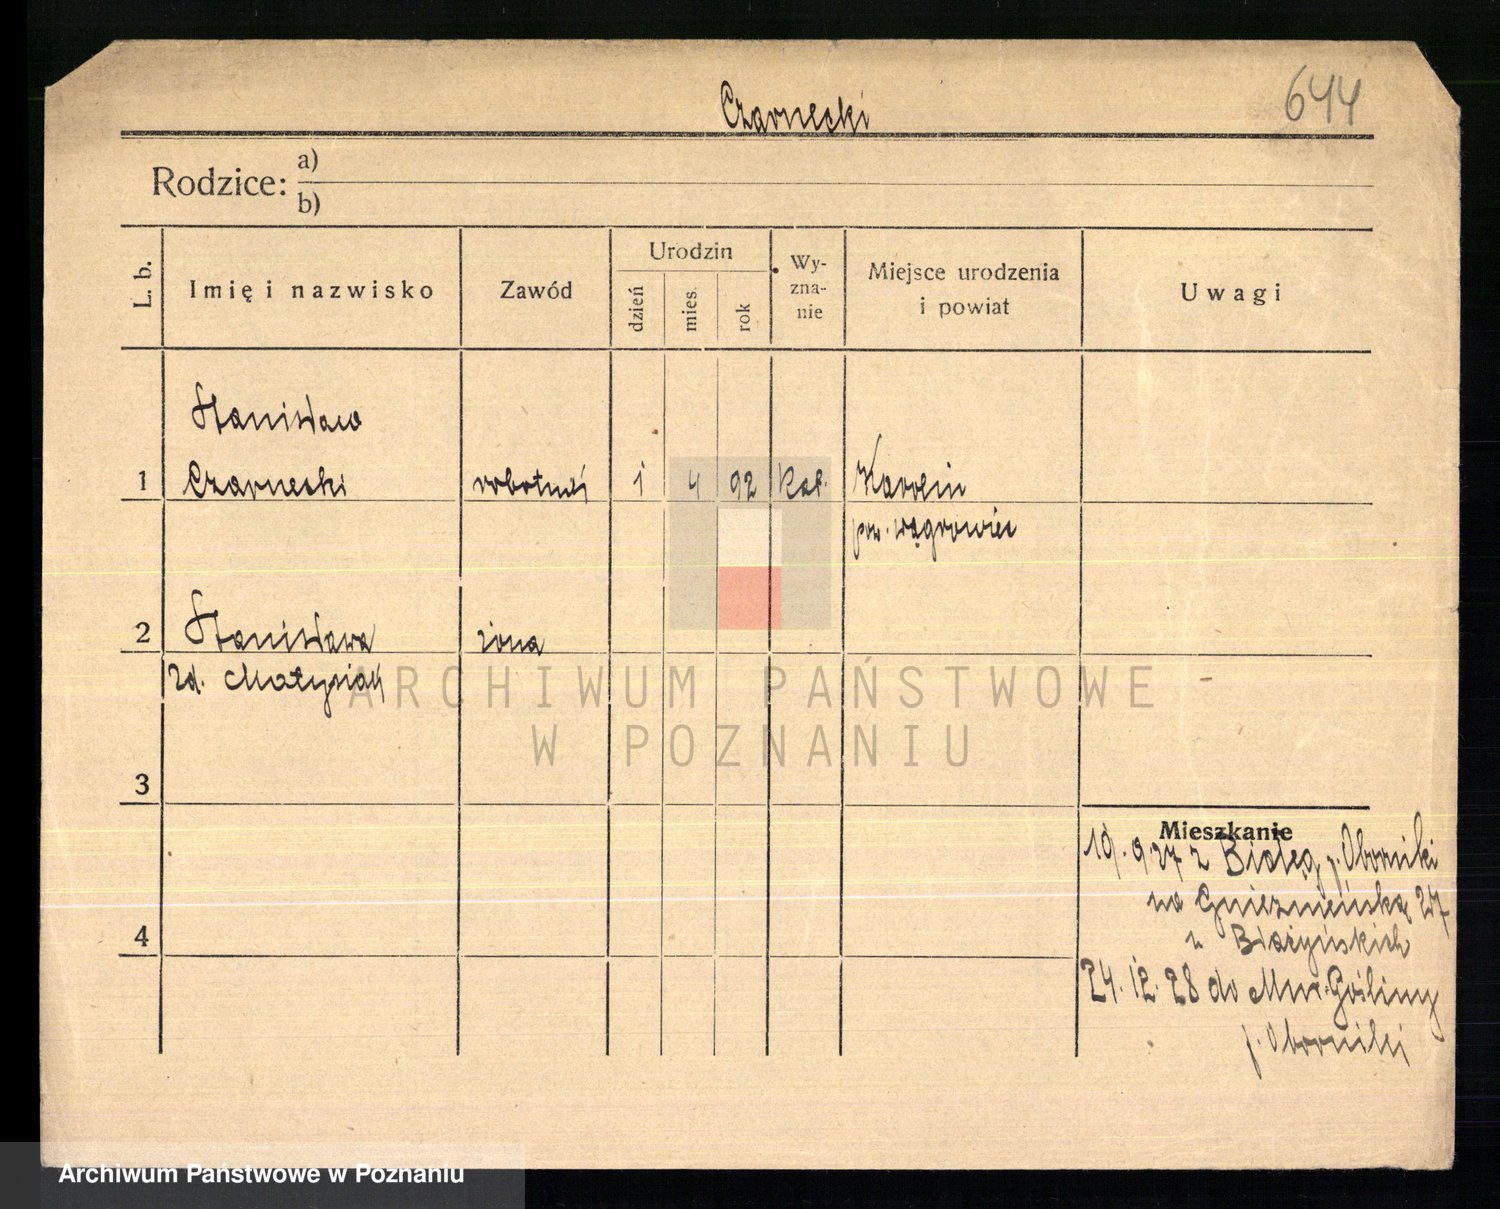 Czarnecki
644
Rodzice: a)
b)
L. b.
Imię i nazwisko
Zawód
Urodzin
dzień
mies.
rok
Wy-
zna-
nie
Miejsce urodzenia
i powiat
Uwagi
Stanisław
1 Czarnecki robotnik 1 4 92 kat. Karolin
pow. Wągrowiec
2 Stanisława żona
zd. Matysiak
3
4
Mieszkanie
19. 9 27 z p. Oborniki
na Gnieźnieńską 27
u Błażyńskich
24. 12. 28 do Mur. Gośliny
p. Oborniki
ARCHIWUM PAŃSTWOWE
W POZNANIU
Archiwum Państwowe w Poznaniu